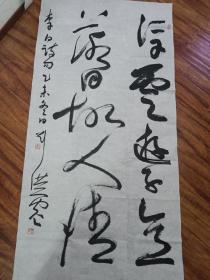 浮云游子意
落日故人情
李白诗句乙未冬日